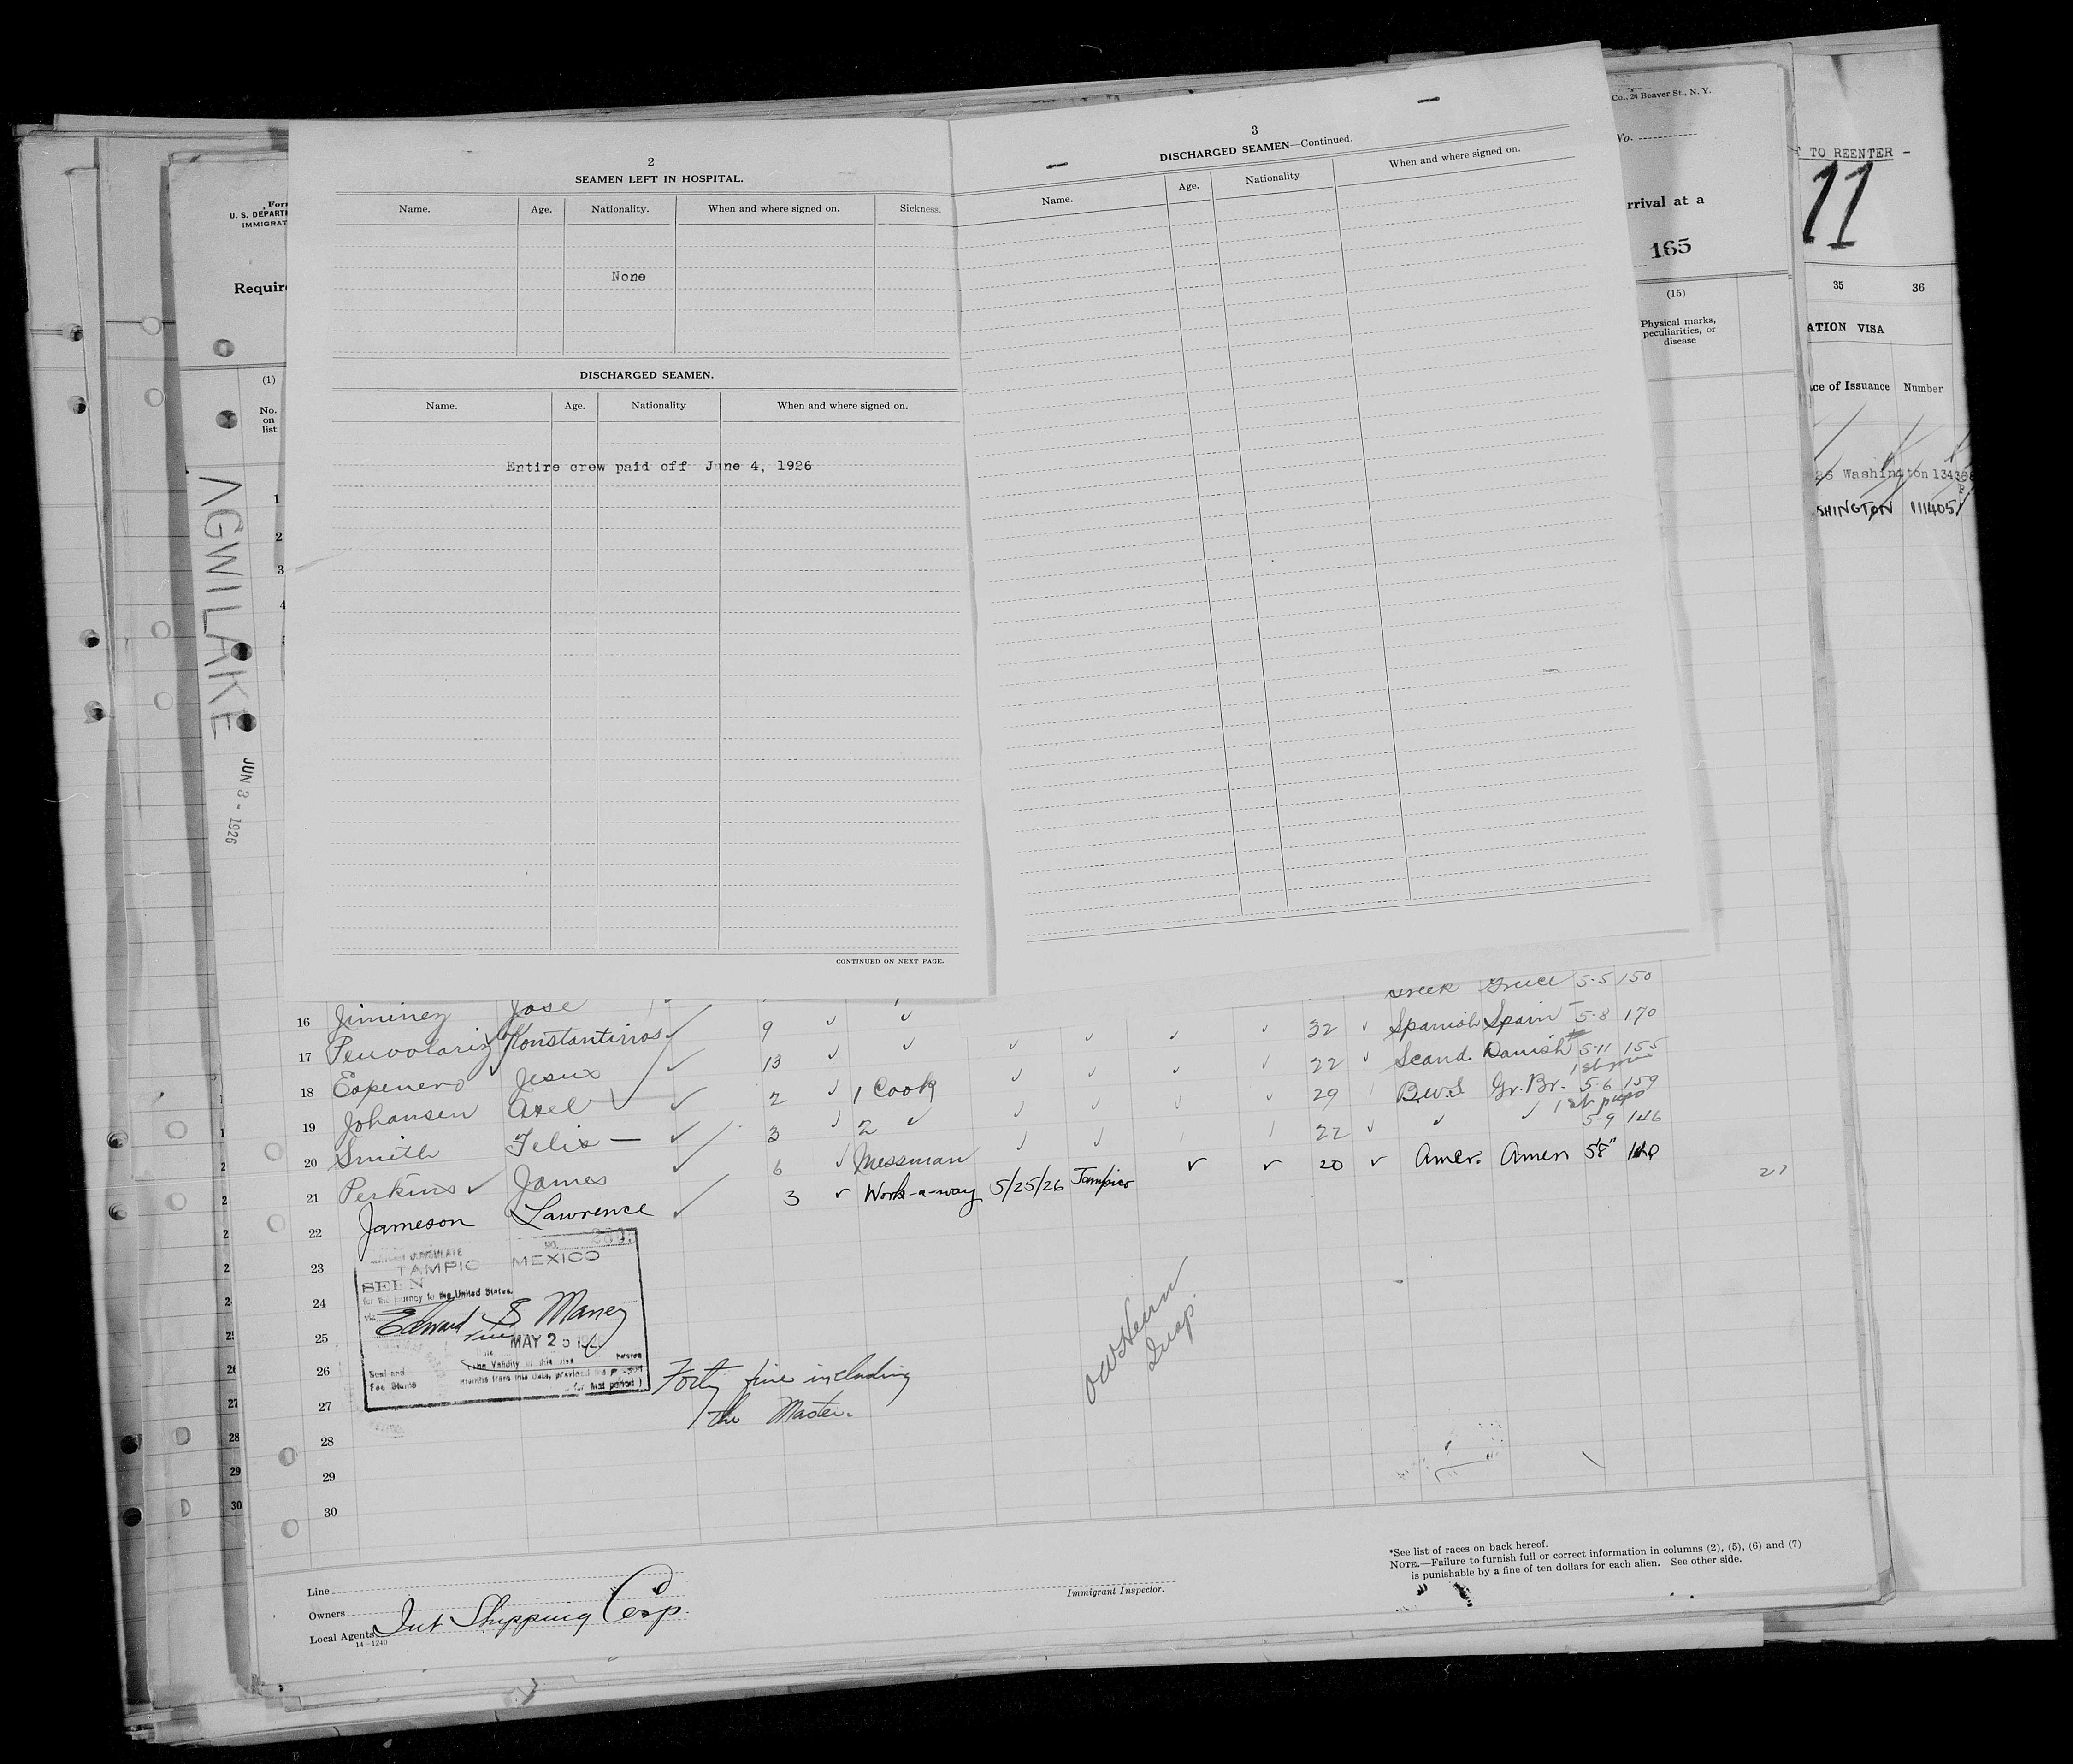 2
SEAMEN LEFT IN HOSPITAL.
Name. Age. Nationality. When and where signed on. Sickness.
None
DISCHARGED SEAMEN.
Name. Age. Nationality When and where signed on.
Entire crew paid off June 4, 1926
CONTINUED ON NEXT PAGE.
3
DISCHARGED SEAMEN—Continued.
Name. Age. Nationality When and where signed on.
Form
U. S. DEPARTM
IMMIGRAT
Require
(1)
No.
on
list
1
2
3
4
AGWILAKE
JUN 3 - 1926
Co., 21 Beaver St., N. Y.
No.
rrival at a
165
(15)
Physical marks,
peculiarities, or
disease
TO REENTER -
11
35 36
ATION VISA
ce of Issuance Number
Washington
SHINGTON 111405
Greece 5-5 150
16 Jiminez Jose 9 32 Spanish Spain 5-8 170
17 Konstantinos 13 22 Scand Danish 5-11 155
18 Jesus 2 1 Cook 29 B.W.I Gr. Br. 5-6 159
19 Johansen Axel 3 2 22 5-9 146
20 Smith Felix — 6 Messman 20 Amer. Amer 5'8" 140
21 Perkins James 3 Work-a-way 5/25/26 Tampico
22 Jameson Lawrence
23
24
25
26
27
28
29
30
TAMPICO MEXICO
SEEN
for the journey to the United States.
Edward S Maney
MAY 25
Seal and
Fee Stamp
Forty five including
the Master.
28
29
30
Line
Owners
Local Agents Int Shipping Corp.
14—1240
Immigrant Inspector.
*See list of races on back hereof.
NOTE.—Failure to furnish full or correct information in columns (2), (5), (6) and (7)
is punishable by a fine of ten dollars for each alien. See other side.